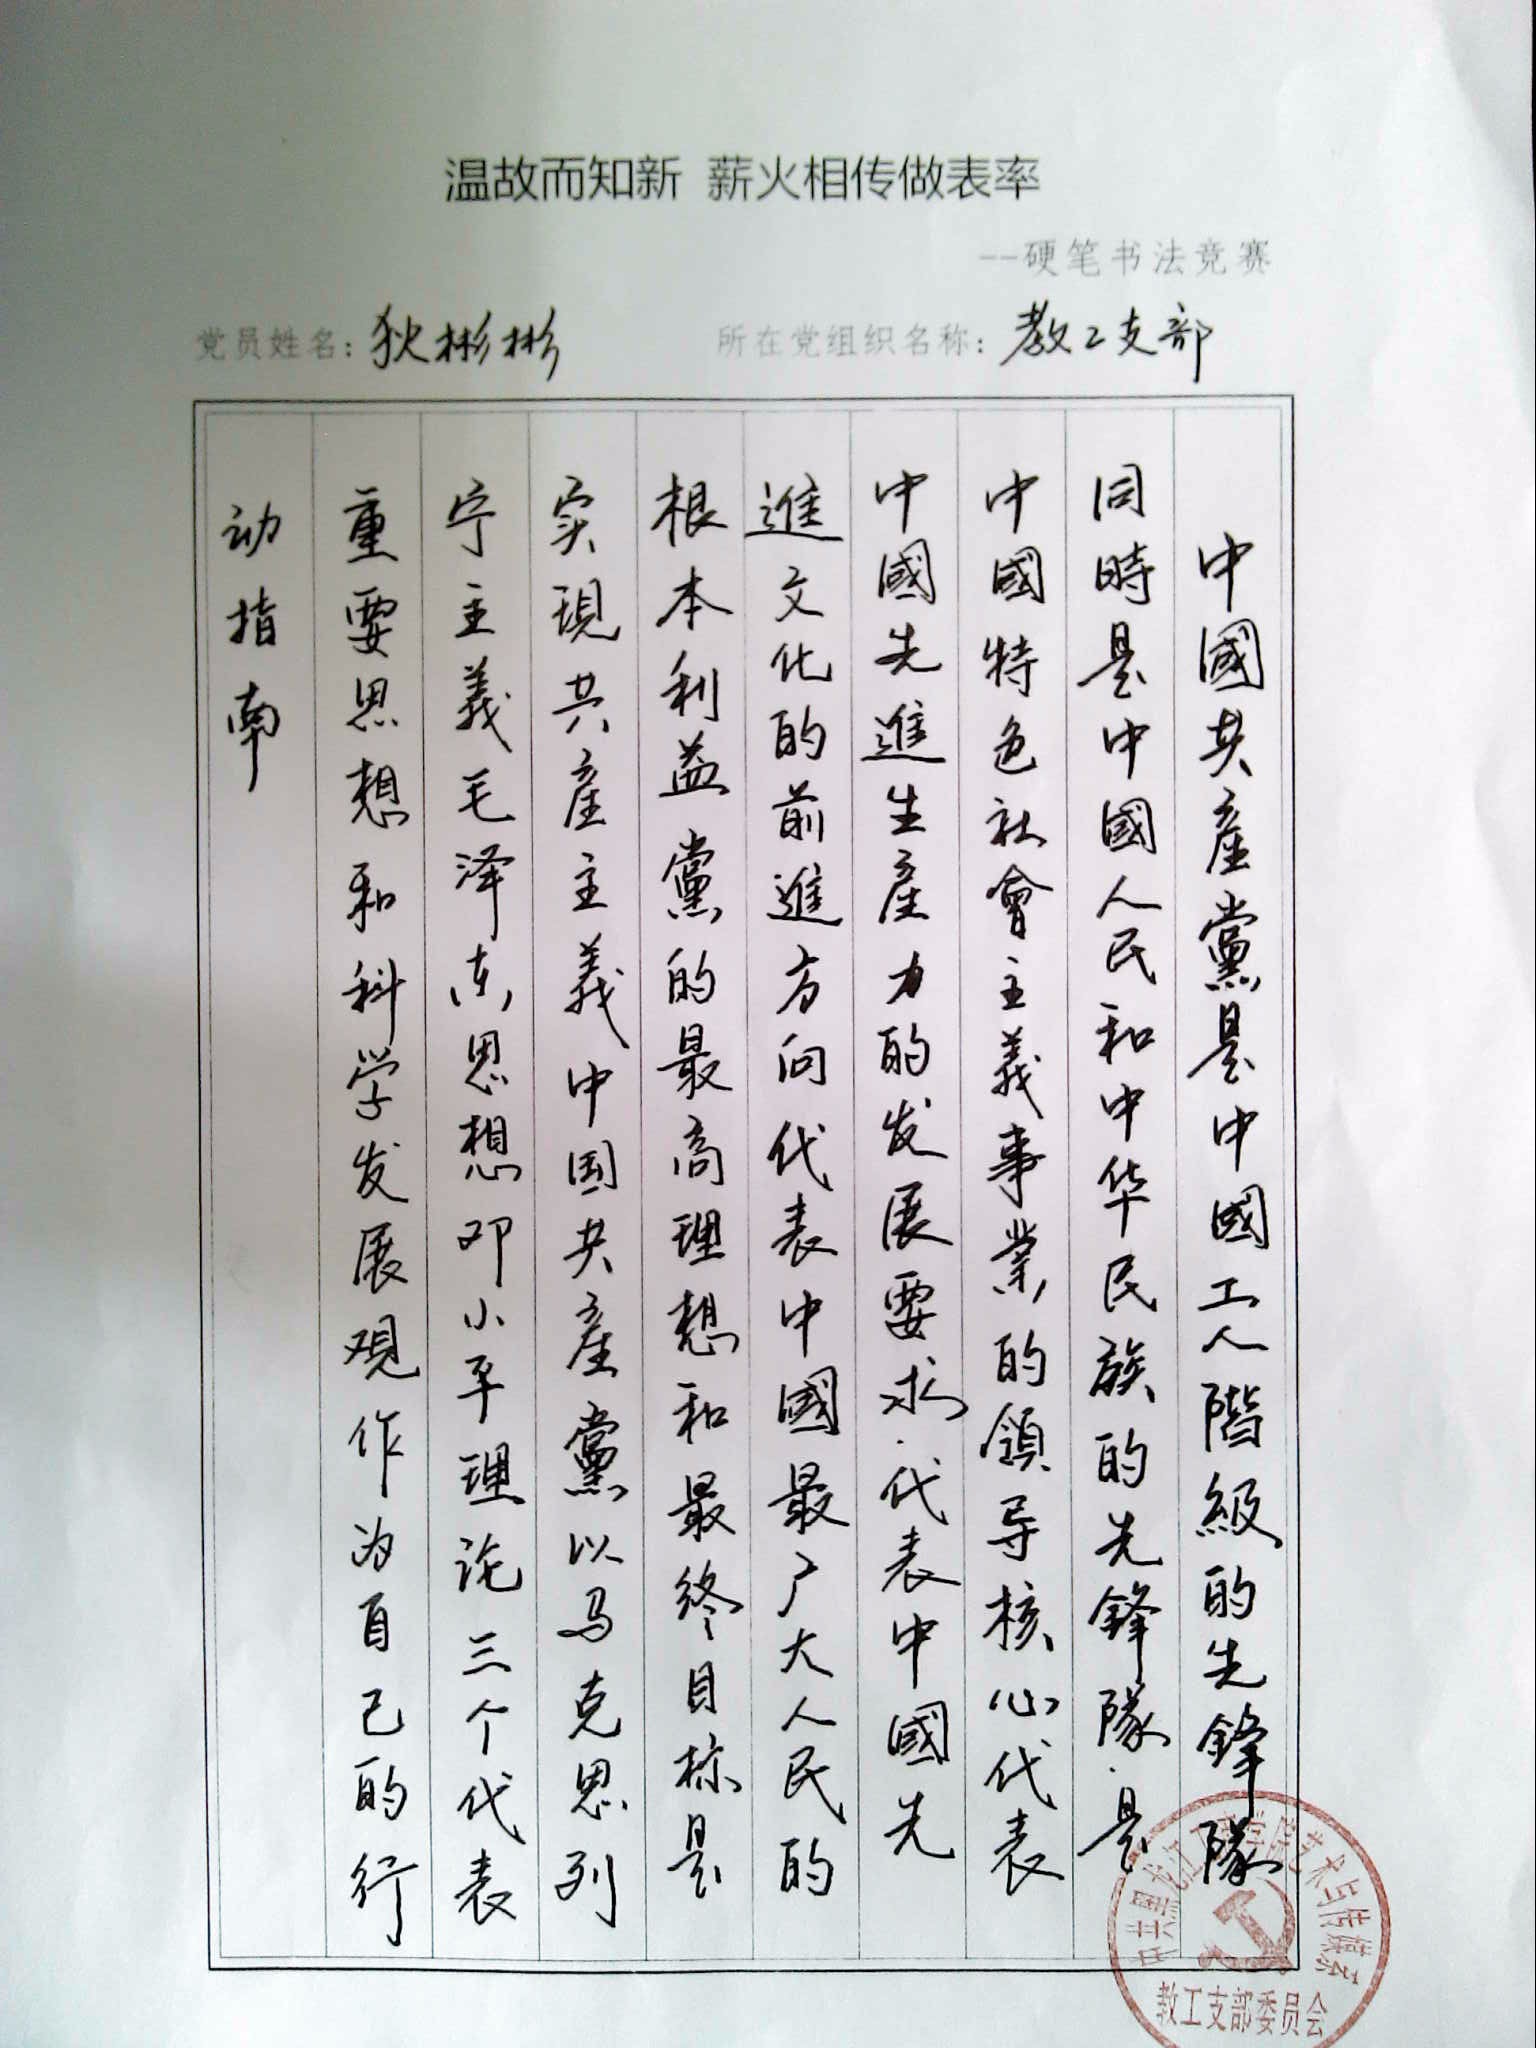 温故而知新 薪火相传做表率
--硬笔书法竞赛
党员姓名：狄彬彬 所在党组织名称：教工支部
中國共產黨是中國工人階級的先鋒隊
同時是中國人民和中华民族的先鋒隊.是
中國特色社會主義事業的領导核心代表
中國先進生產力的发展要求.代表中國先
進文化的前進方向代表中國最广大人民的
根本利益黨的最高理想和最終目标是
实現共產主義中国共產黨以马克思列
宁主義毛泽东思想邓小平理论三个代表
重要思想和科学发展观作为自己的行
动指南
教工支部委员会